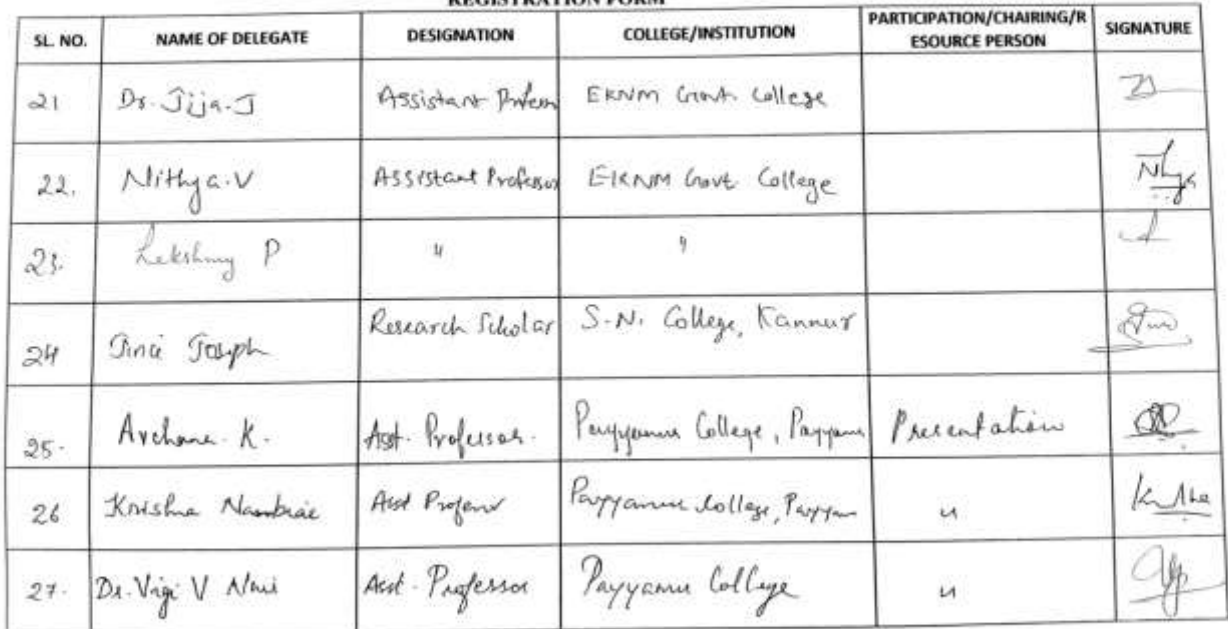 REGISTRATION FORM
SL. NO. NAME OF DELEGATE DESIGNATION COLLEGE/INSTITUTION PARTICIPATION/CHAIRING/R
ESOURCE PERSON SIGNATURE
21 Dr. Jija. J Assistant Profess EKNM Govt. College
22. Nithya. V Assistant Professor EKNM Govt College
23. Lekshmy P " "
24 Jinci Joseph Research Scholar S.N. College, Kannur
25. Archana. K. Asst. Professor. Payyanur College, Payyanu Presentation
26 Krishna Nambiar Asst Professor Payyanur College, Payyan "
27. Dr. V Asst. Professor Payyanur College "